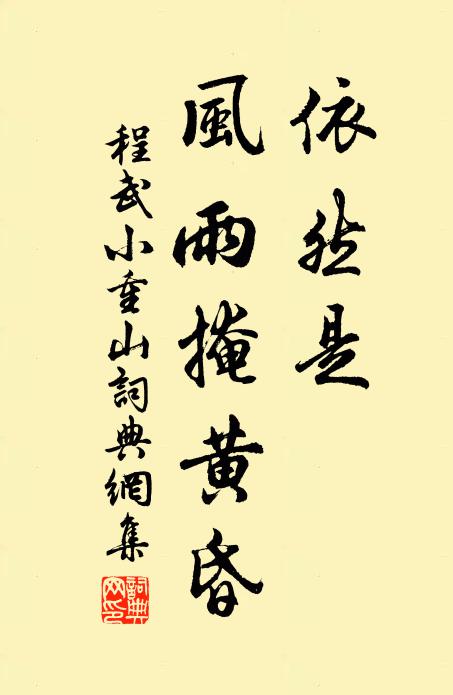 依然是
風雨掩黃昏
程武小重山詞典網集
詞典網印